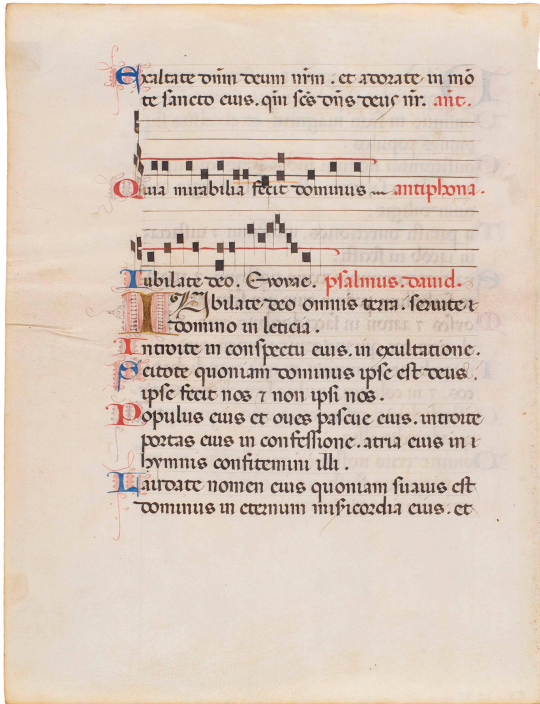 Exaltate dn̄m deum nr̄m . et adorate in mō
te sancto eius . qm̄ sc̄s dn̄s deus nr̄. ant̄.
Quia mirabilia fecit dominus antiphona .
Iubilate deo . Evovae . psalmus . david .
IUbilate deo omnis terra . servite
domino in leticia .
Introite in conspectu eius . in exultatione .
Scitote quoniam dominus ipse est deus .
ipse fecit nos ⁊ non ipsi nos .
Populus eius et oves pascue eius . introite
portas eius in confessione . atria eius in
hymnis confitemini illi .
Laudate nomen eius quoniam suavis est
dominus in eternum misericordia eius . et